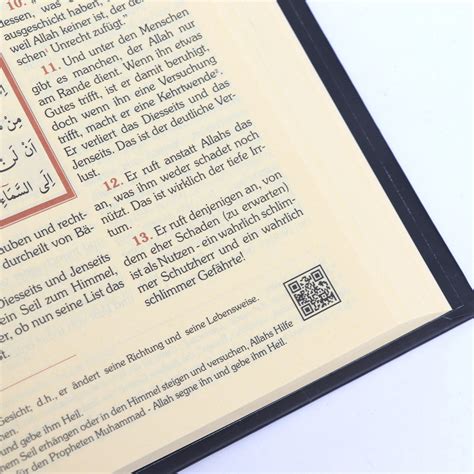 10.
dessen, was
ausgeschickt haben,
weil Allah keiner ist, der den
schen¹ Unrecht zufügt.“
11. Und unter den Menschen
gibt es manchen, der Allah nur
am Rande dient. Wenn ihm etwas
Gutes trifft, ist er damit beruhigt,
doch wenn ihn eine Versuchung
trifft, macht er eine Kehrtwende².
Er verliert das Diesseits und das
Jenseits. Das ist der deutliche Ver-
lust.
12. Er ruft anstatt Allahs das
an, was ihm weder schadet noch
nützt. Das ist wirklich der tiefe Irr-
tum.
13. Er ruft denjenigen an, von
dem eher Schaden (zu erwarten)
ist als Nutzen - ein wahrlich schlim-
mer Schutzherr und ein wahrlich
schlimmer Gefährte!
أَن لَّن
إِلَى السَّمَآءِ
auben und recht-
durcheilt von Bä-
Diesseits und Jenseits
ein Seil zum Himmel,
er, ob nun seine List das
Gesicht; d.h., er ändert seine Richtung und seine Lebensweise.
und gebe ihm Heil.
em Seil erhängen oder in den Himmel steigen und versuchen, Allahs Hilfe
für den Propheten Muhammad - Allah segne ihn und gebe ihm Heil.